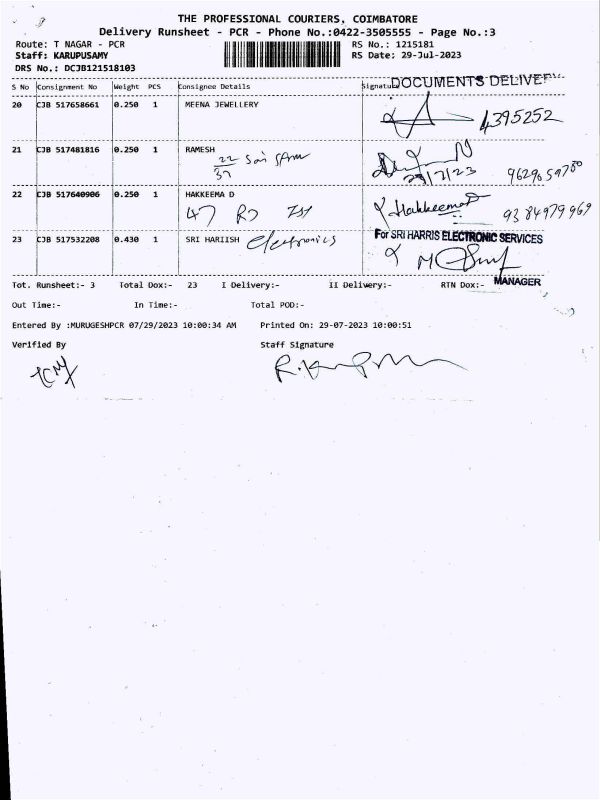 THE PROFESSIONAL COURIERS, COIMBATORE
Delivery Runsheet - PCR - Phone No.:0422-3505555 - Page No.:3
Route: T NAGAR - PCR RS No.: 1215181
Staff: KARUPUSAMY RS Date: 29-Jul-2023
DRS No.: DCJB121518103
S No Consignment No Weight PCS Consignee Details Signatu DOCUMENTS DELIVE
20 CJB 517658661 0.250 1 MEENA JEWELLERY
4395252
21 CJB 517481816 0.250 1 RAMESH
22 Sai
37
29/7/23
22 CJB 517640906 0.250 1 HAKKEEMA D
47 Hakkeema
9384979969
23 CJB 517532208 0.430 1 SRI HARIISH Electronics For SRI HARRIS ELECTRONIC SERVICES
MANAGER
Tot. Runsheet:- 3 Total Dox:- 23 I Delivery:- II Delivery:- RTN Dox:-
Out Time:- In Time:- Total POD:-
Entered By :MURUGESHPCR 07/29/2023 10:00:34 AM Printed On: 29-07-2023 10:00:51
Verified By Staff Signature